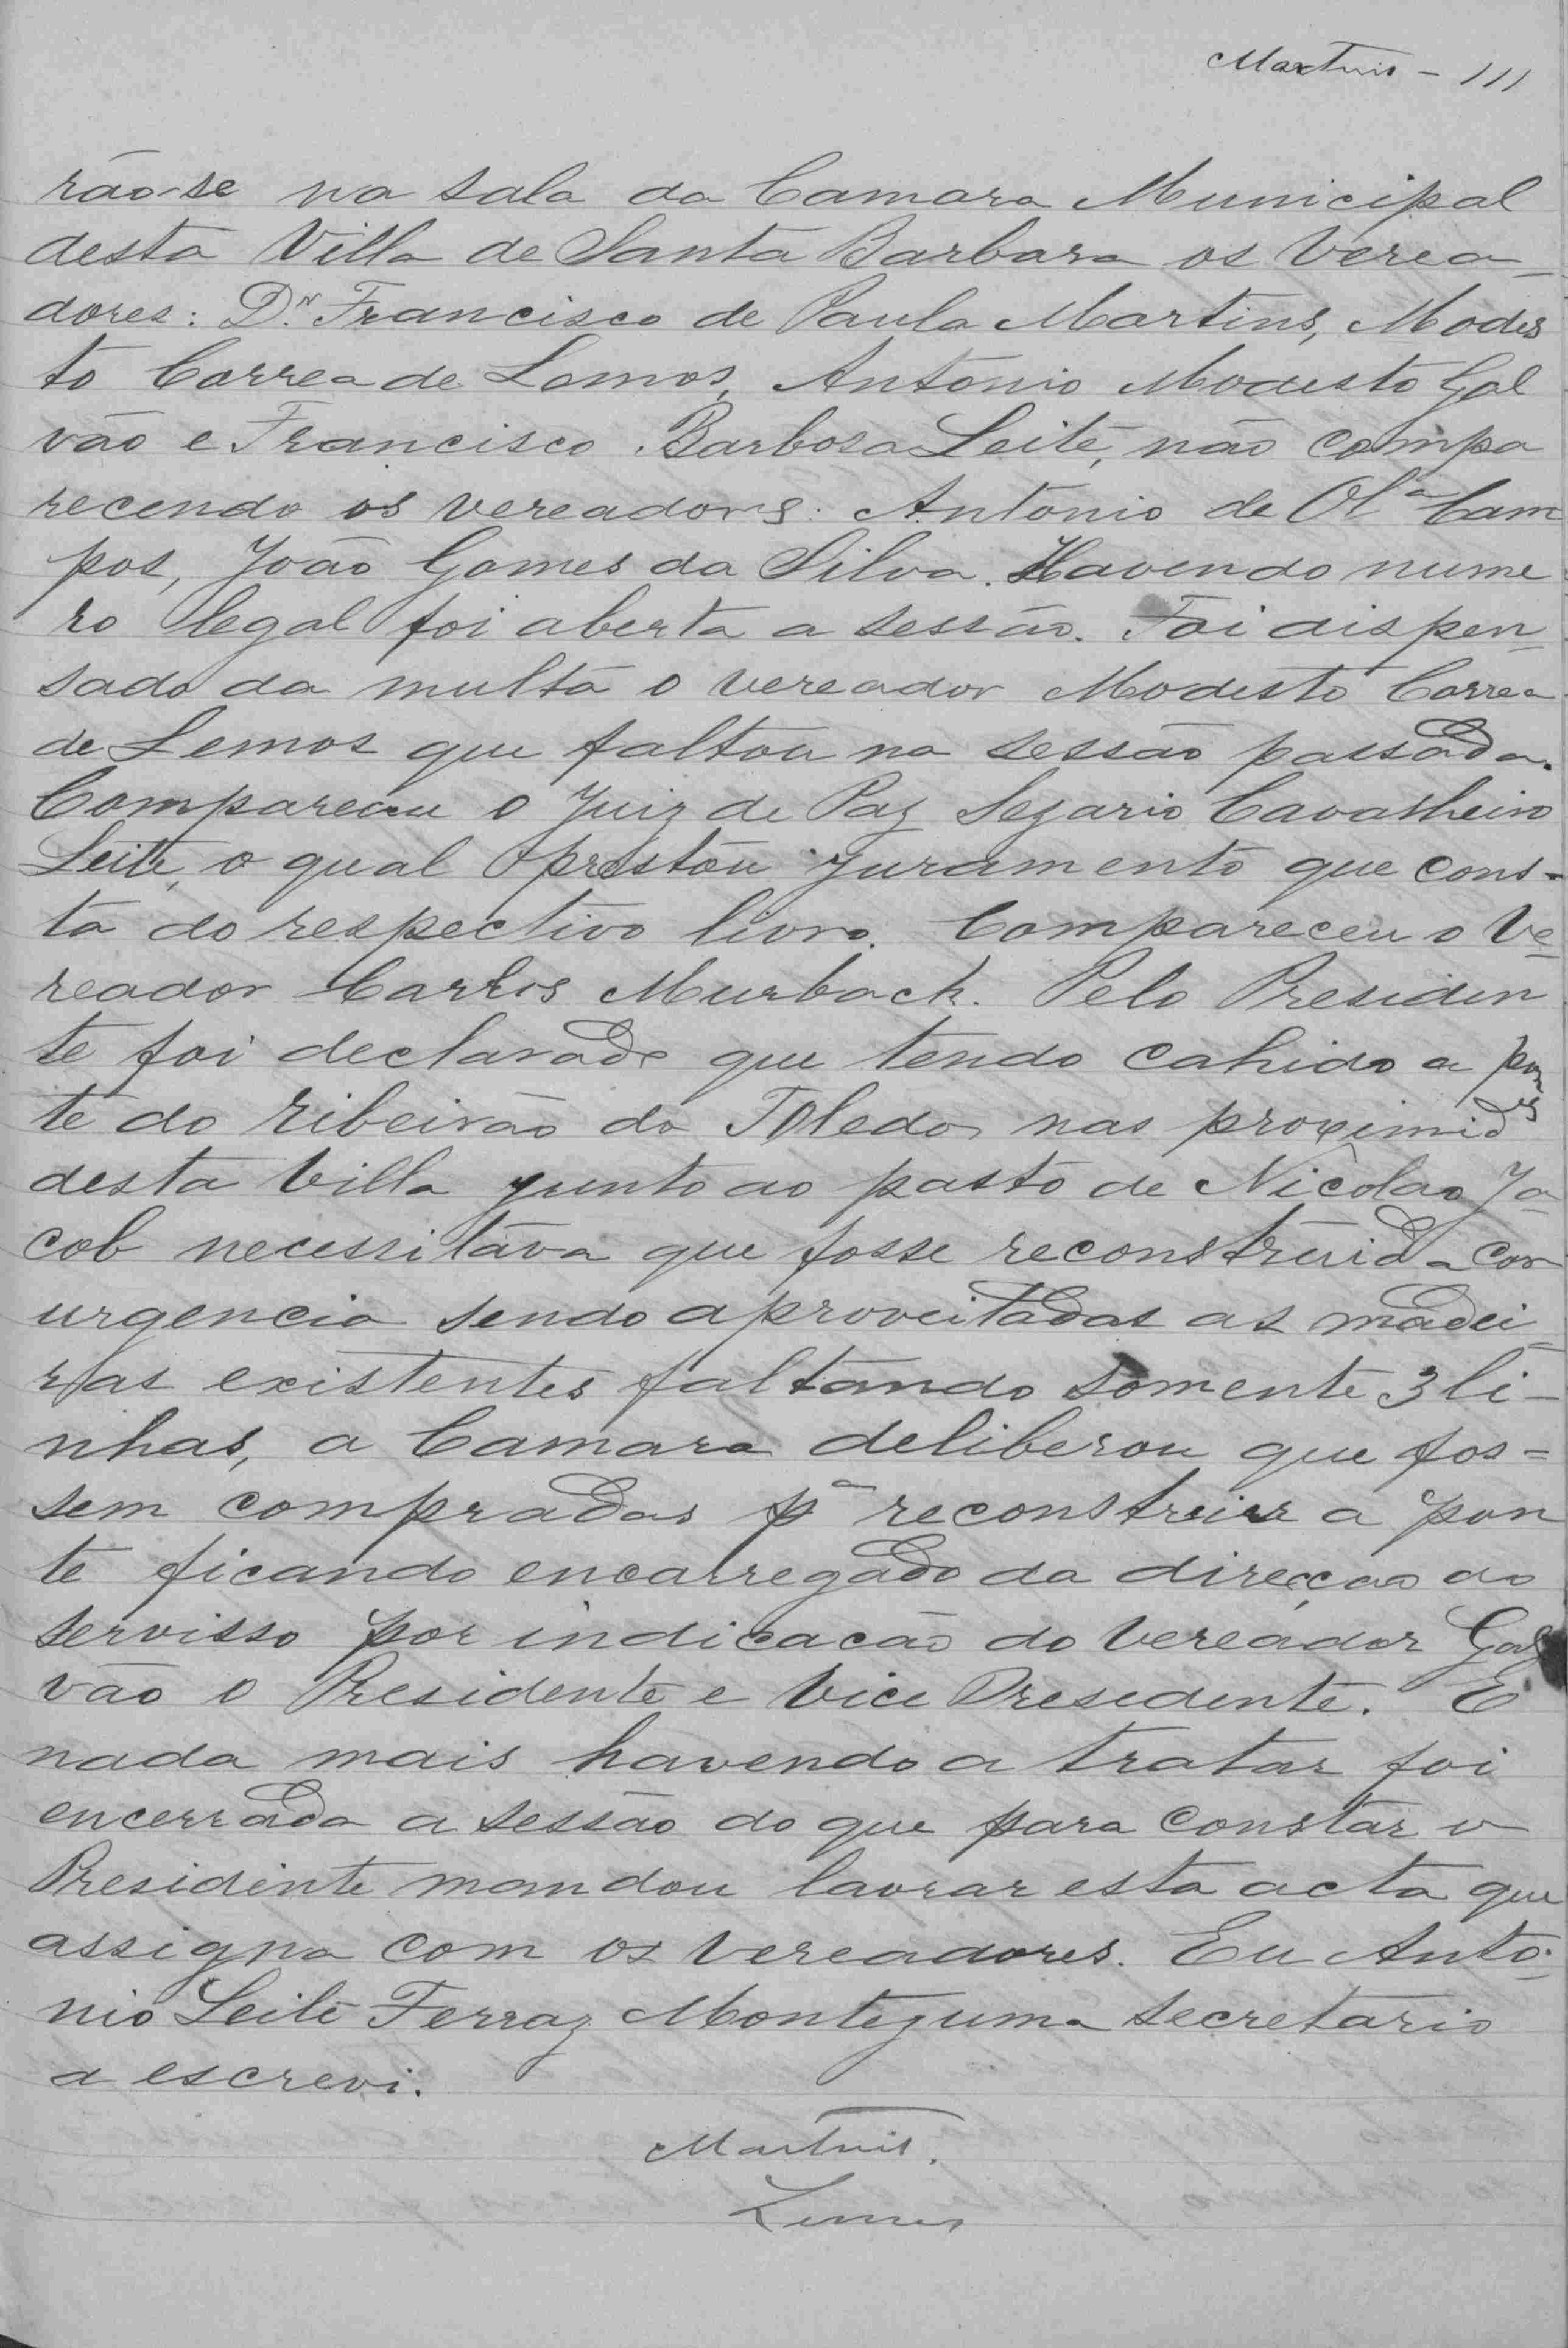 Martins - 111
rão-se na sala da Camara Municipal
desta Villa de Santa Barbara os verea-
dores: Dr. Francisco de Paula Martins, Modes
to Correa de Lemos, Antonio Modesto Gal
vão e Francisco Barbosa Leite, não compa
recendo os vereadores: Antonio de Olª Cam
pos, João Gomes da Silva. Havendo nume
ro legal foi aberta a sessão. Foi dispen
sado da multa o vereador Modesto Correa
de Lemos que faltou na sessão passada.
Compareceu o Juiz de Paz Sezario Cavalheiro
Leite, o qual prestou juramento que cons-
ta do respectivo livro. Compareceu o Ve
reador Carlos Murbach. Pelo Presiden
te foi declarado que tendo cahido a pon
te do ribeirão do Toledo nas proximides
desta Villa junto ao pasto de Nicolao Ja
cob necessitava que fosse reconstruida com
urgencia sendo aproveitadas as madei
ras existentes faltando somente 3 li-
nhas, a Camara deliberou que fos=
sem compradas pª reconstruir a pon
te ficando encarregado da direcção do
servisso por indicacão do vereador Gal
vão o Presidente e Vice Presedente. E
nada mais havendo a tratar foi
encerrada a sessão do que para constar o
Presidente mandou lavrar esta acta que
assigna com os vereadores. Eu Anto-
nio Leite Ferraz Montezuma secretario
a escrevi.
Martins.
Lemos